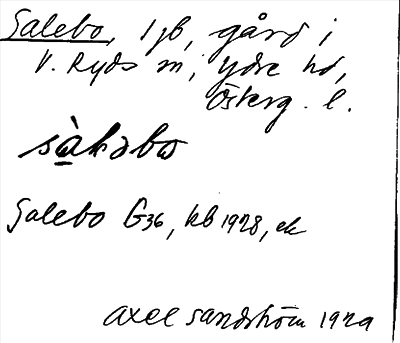 Salebo, 1 jb, gård i
V. Ryds sn, Ydre hd,
Österg. l.
sàləbω
Salebo G36, kb 1928, ek
Axel Sandström 1929